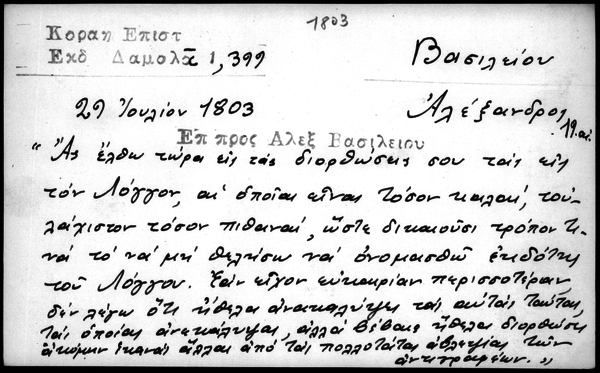 1803
Κοραη Επιστ
Εκδ Δαμολᾶ 1,399
Βασιλείου
29 Ἰουλίου 1803
Ἀλέξανδρος
19 αἰ.
Επ προς Αλεξ Βασιλειου
"Ἂς ἔλθω τώρα εἰς τὰς διορθώσεις σου τὰς εἰς
τὸν Λόγγον, αἱ ὁποῖαι εἶναι τόσον καλαί, τοὐ-
λάχιστον τόσον πιθαναί, ὥστε δικαιοῦσι τρόπον τι-
νά τό νά μή θελήσω νά ὀνομασθῶ ἐκδότης
τοῦ Λόγγου. Ἐάν εἶχον εὐκαιρίαν περισσοτέραν,
δέν λέγω ὅτι ἤθελα ἀνακαλύψει τάς αὐτάς ταύτας,
τάς ὁποίας ἀνεκάλυψας, ἀλλά βέβαια ἤθελα διορθώσει
ἀκόμην ἱκανάς ἄλλας ἀπό τάς πολλοτάτας ἀβλεψίας τῶν
ἀντιγραφέων."